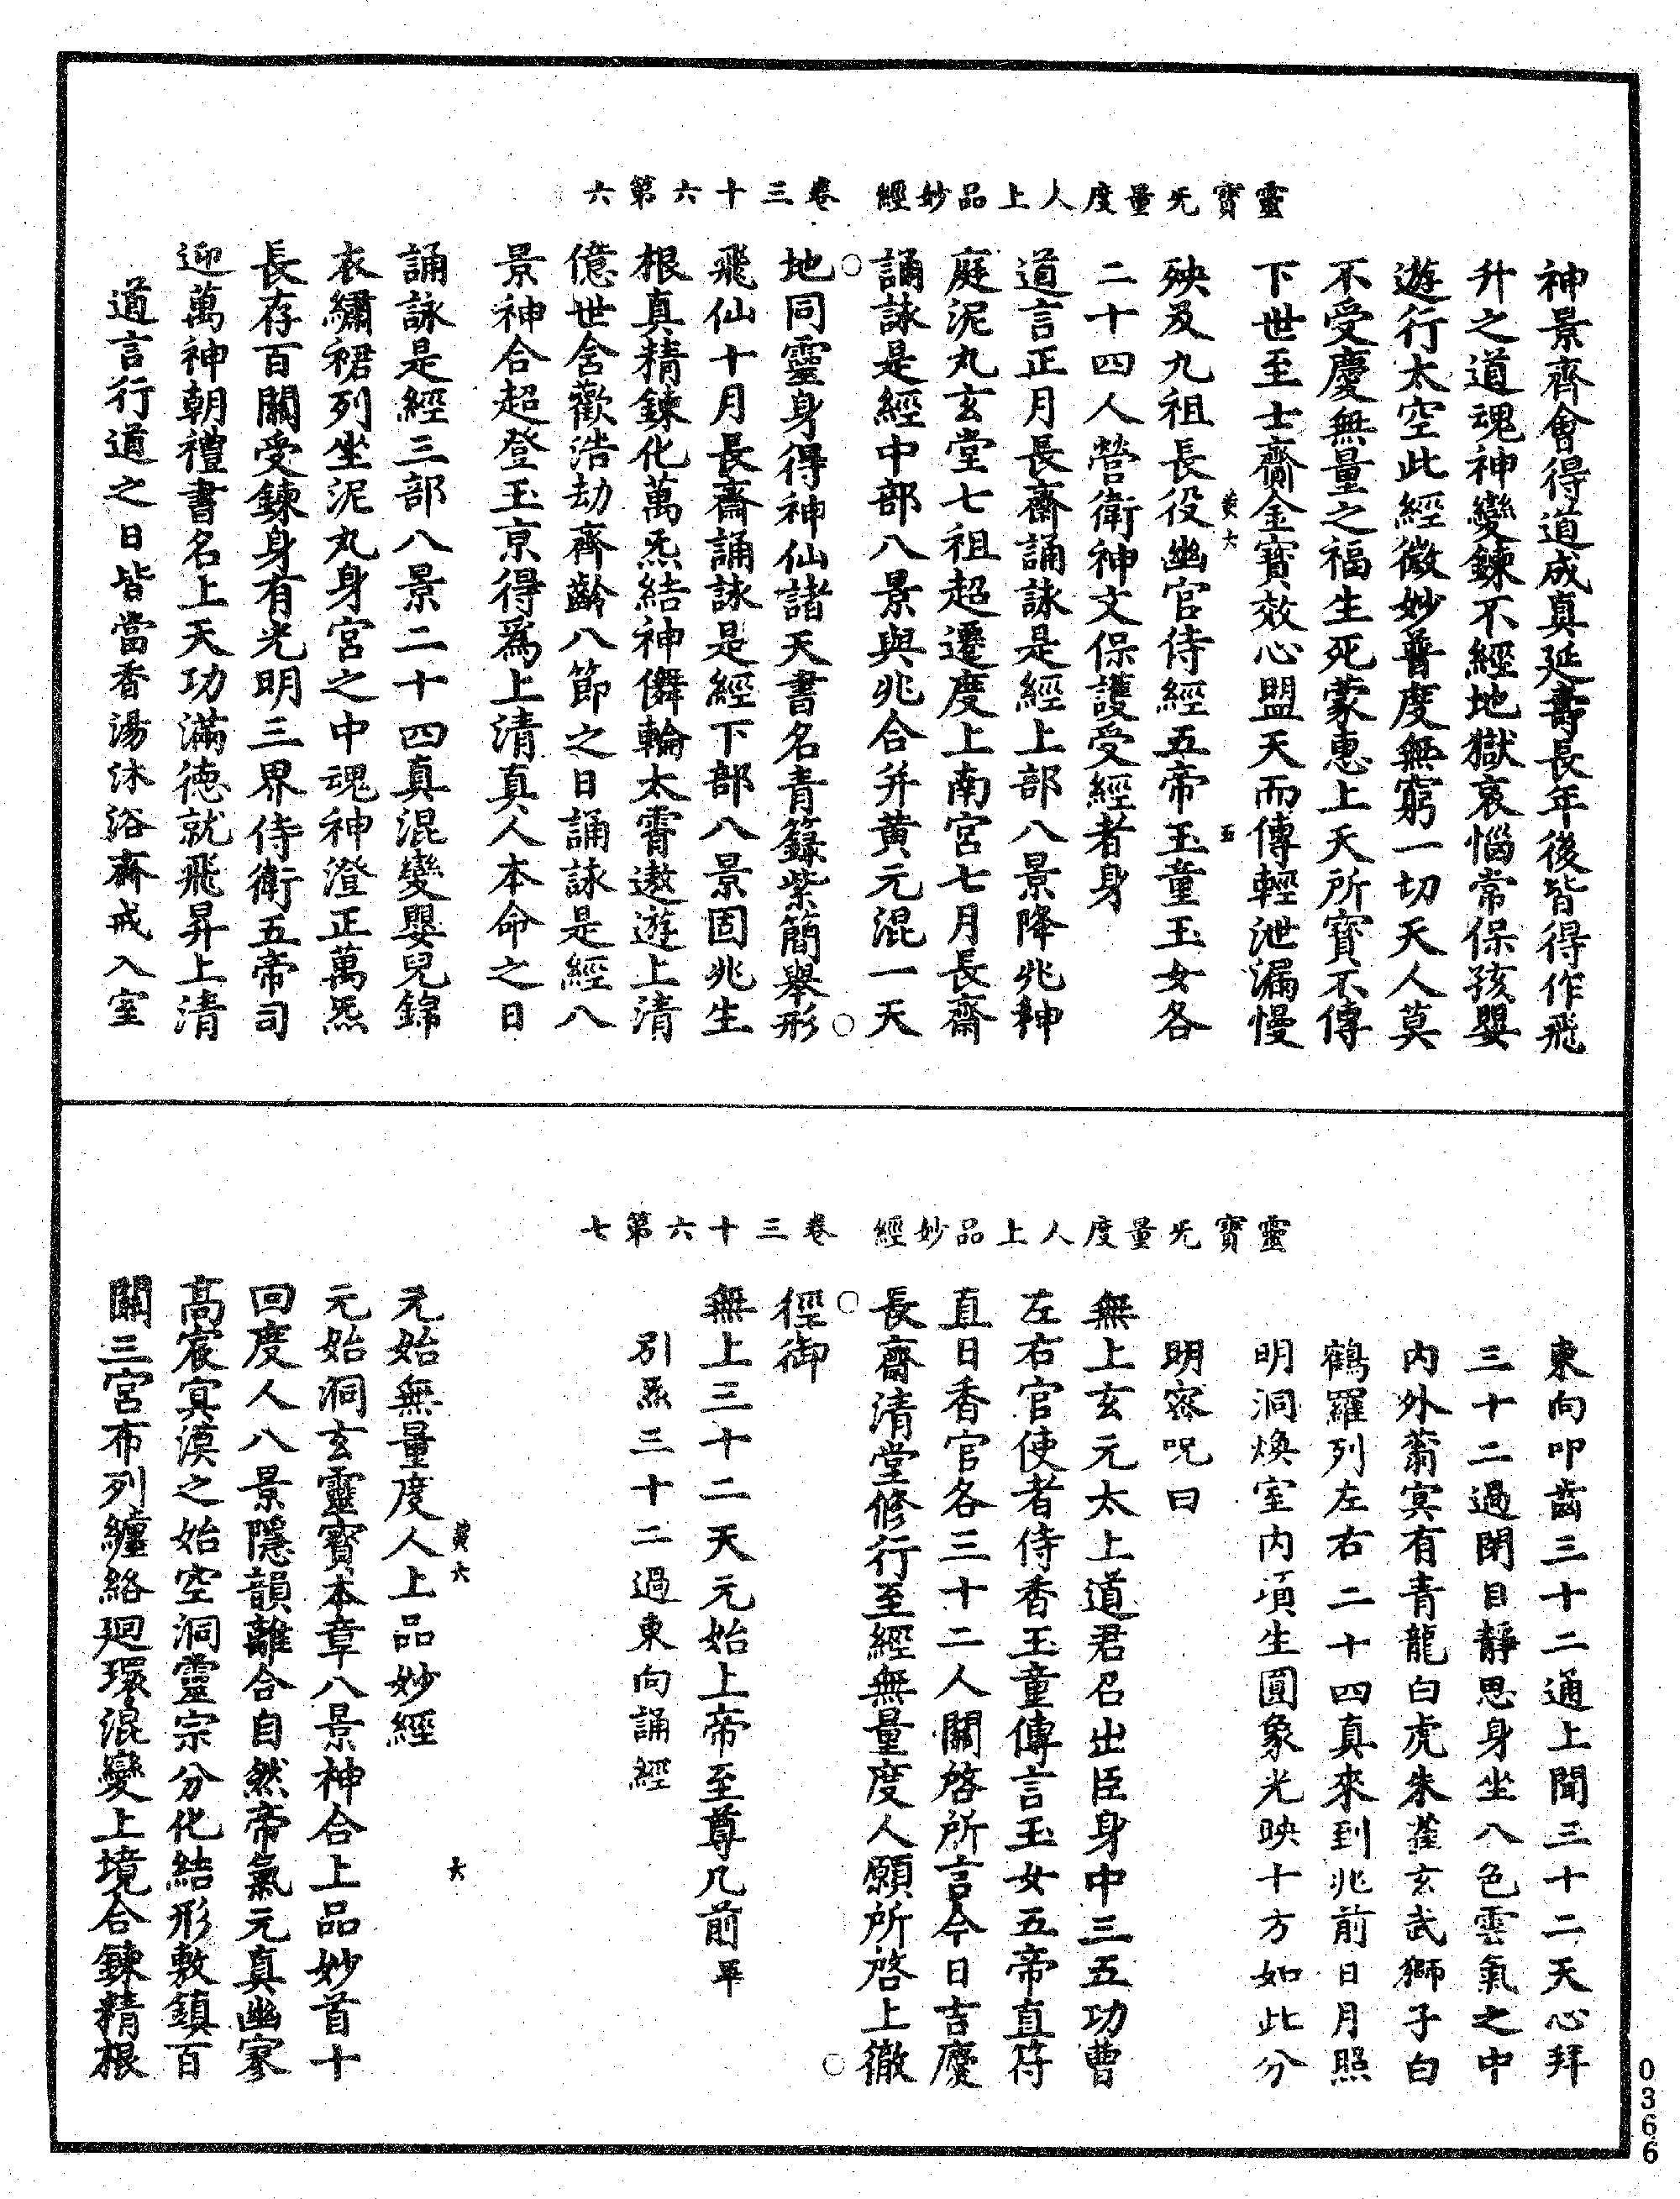 靈寶无量度人上品妙經 卷三十六第六
神景齊會得道成真延壽長年後皆得作飛
升之道魂神變鍊不經地獄哀惱常保孩嬰
遊行太空此經微妙普度無窮一切天人莫
不受慶無量之福生死蒙惠上天所寶不傳
下世至士齎金寶效心盟天而傳輕泄漏慢
黃六 五
殃及九祖長役幽官侍經五帝玉童玉女各
二十四人營衛神文保護受經者身
道言正月長齋誦詠是經上部八景降兆神
庭泥丸玄堂七祖超遷度上南宮七月長齋
誦詠是經中部八景與兆合并黃元混一天
地同靈身得神仙諸天書名青籙紫簡舉形
飛仙十月長齋誦詠是經下部八景固兆生
根真精鍊化萬炁結神儛輪太霄遨遊上清
億世含歡浩劫齊齡八節之日誦詠是經八
景神合超登玉京得爲上清真人本命之日
誦詠是經三部八景二十四真混變嬰兒錦
衣繡裙列坐泥丸身宮之中魂神澄正萬炁
長存百關受鍊身有光明三界侍衛五帝司
迎萬神朝禮書名上天功滿德就飛昇上清
道言行道之日皆當香湯沐浴齋戒入室
靈寶无量度人上品妙經 卷三十六第七
東向叩齒三十二通上聞三十二天心拜
三十二過閉目靜思身坐八色雲氣之中
內外蓊冥有青龍白虎朱雀玄武獅子白
鶴羅列左右二十四真來到兆前日月照
明洞煥室內項生圓象光映十方如此分
明密呪曰
無上玄元太上道君召出臣身中三五功曹
左右官使者侍香玉童傳言玉女五帝直符
直日香官各三十二人關啓所言今日吉慶
長齋清堂修行至經無量度人願所啓上徹
徑御
無上三十二天元始上帝至尊几前畢
引炁三十二過東向誦經
黃六 六
元始無量度人上品妙經
元始洞玄靈寶本章八景神合上品妙首十
回度人八景隱韻離合自然帝氣元真幽寥
高宸冥漠之始空洞靈宗分化結形敷鎮百
關三宮布列纏絡迴環混變上境合鍊精根
0366